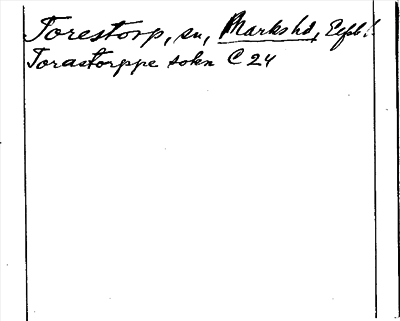 Torestorp, sn, Marks hd, Elfsb l.
Torastorppe sokn C 24